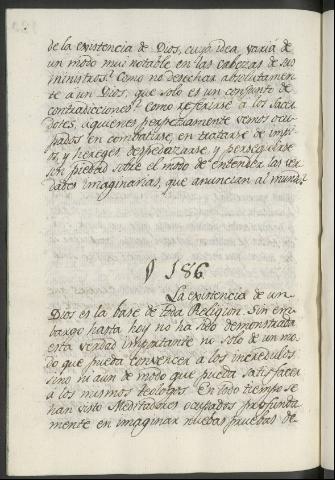 de la existencia de Dios, cuya idea varia de
un modo mui notable en las cabezas de sus
ministros? Como no desechar absolutamen
te a un Dios, que solo es un conjunto de
contradicciones? como referirse a los Sacer
dotes, a quienes perpetuamente vemos ocu
pados en combatirse, en tratarse de impi
os, y hereges, despedazarse, y perseguirse
sin piedad sobre el modo de entender las ver
dades imaginarias, que anuncian al mundo?
§ 186
La existencia de un
Dios es la base de toda Religion. Sin em
bargo hasta hoy no ha sido demonstrada
esta verdad importante no solo de un mo
do que pueda convencer a los incredulos
sino ni aun de modo que pueda satisfacer
a los mismos teologos. En todo tiempo se
han visto Meditadores ocupados profunda
mente en imaginar nuebas pruebas de